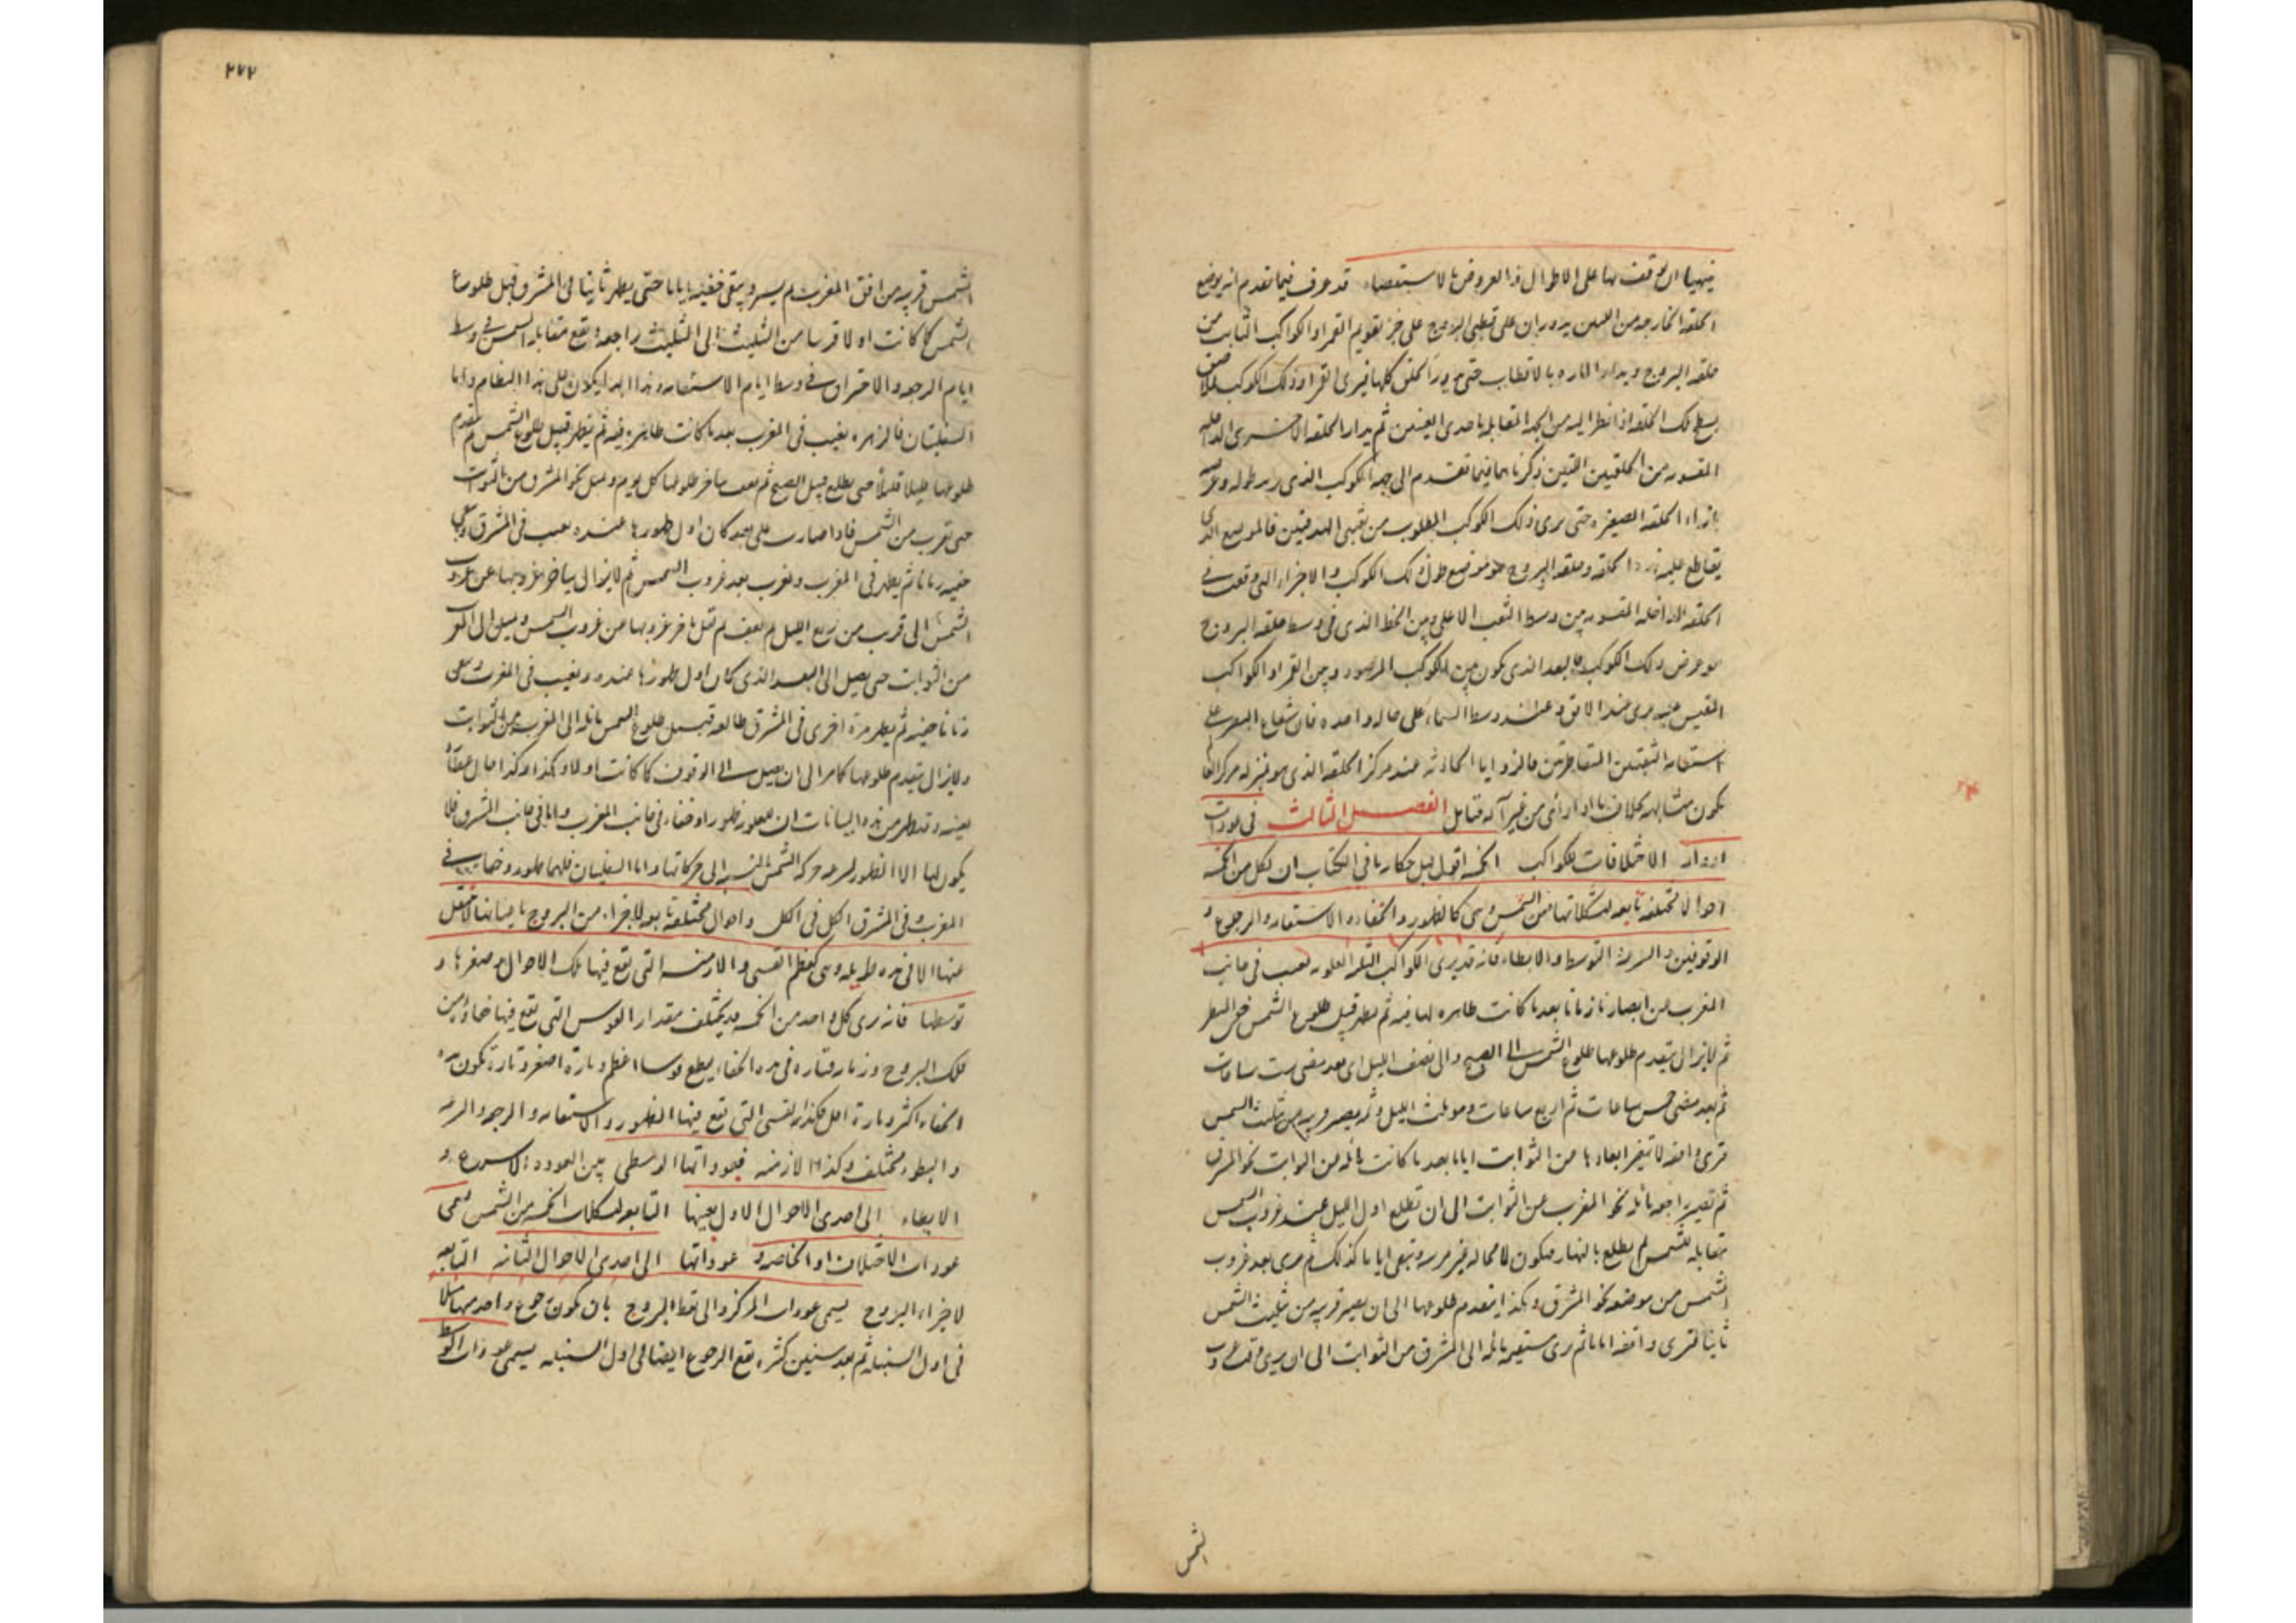 قد عرف فيما تقدم انه يوضع
الحلقة الخارجة من يدوران على قطبى البروج على جزء تقويم القمر او الكواكب الثابت من
حلقة البروج ويدار المارة بالاقطاب حتى كلها فيرى القمر او ذلك الكوكب
تلك الحلقة اذا نظر اليه من المقابلة باحدى العينين ثم يدار الحلقة الاخرى
من الحلقتين اللتين ذكرناهما فيما تقدم الى جهة الكوكب الذى
بازاء الحلقة الصغيرة حتى يرى ذلك الكوكب المطلوب من ثقبى الهدفتين فالموضع الذى
يتقاطع عليه الحلقة وحلقة البروج هو موضع طول ذلك الكوكب والاجزاء التى وقعت فى
الحلقة الداخلة بين وسط الثقب الاعلى وبين الخط الذى فى وسط حلقة البروج
هو عرض ذلك الكوكب البعد الذى يكون بين الكوكب المرصود وبين القمر او الكواكب
المقيس عليه يرى عند الافق وعند وسط السماء على حالة واحدة فان شعاع البصر على
استقامة الثقبتين فالزوايا الحادثة عند مركز الحلقة الذى هو بمنزلة مركز
يكون متشابهة بخلاف ما اذا رأى من غير آلة فتأمل الفصل الثالث فى عودات
ادوار الاختلافات للكواكب الخمسة اقول قبل فى الكتاب ان لكل من الخمسة
احوالا مختلفة تابعة لتشكلاتها من الشمس وهى كالظهور والخفاء والاستقامة والرجوع و
الوقوفين والسرعة التوسط والابطاء فانه قد يرى الكواكب الثلثة العلوية تغيب فى جانب
المغرب عن ابصارنا زمانا بعد ما كانت ظاهرة لها فيه ثم يظهر قبيل طلوع الشمس
ثم لا يزال يتقدم طلوعها طلوع الشمس الى الصبح والى نصف الليل اى بعد مضى ست ساعات
ثم بعد مضى خمس ساعات ثم اربع ساعات وهو ثلث الليل من تثليث الشمس
فترى واقفة لا يتغير ابعادها من الثوابت اياما بعد ما كانت مائلة من الثوابت نحو المشرق
ثم تصير راجعة مائلة نحو المغرب عن الثوابت الى ان تطلع اول الليل عند غروب الشمس
مقابلة للشمس ثم يطلع بالنهار فيكون لا محالة غير مرئية وتبقى اياما كذلك ثم يرى بعد غروب
الشمس من موضعه نحو المشرق وهكذا يتقدم طلوعها الى ان يصير قريبة من تثليث الشمس
ثانيا فترى واقفة اياما ثم يرى مستقيمة مائلة الى المشرق من الثوابت الى ان يرى
الشمس
٢٧٢
الشمس قريبة من افق المغرب ويبقى خفية اياما حتى يظهر ثانيا فى المشرق قبل طلوع
الشمس كما كانت اولا من التثليث الى التثليث راجعة يقع مقابلة الشمس فى وسط
ايام الرجعة والاحتراق فى وسط ايام الاستقامة وهذا ابدا يكون على هذا النظام واما
السفليتان فالزهرة يغيب فى المغرب بعد ما كانت ظاهرة فيه ثم يظهر قبيل طلوع الشمس ثم يتقدم
طلوعها قليلا قليلا حتى يطلع قبيل الصبح ثم يقف يتاخر طلوعها كل يوم ويميل نحو المشرق من الثوابت
حتى تقرب من الشمس فاذا صارت على بعد كان اول ظهورها عنده يغيب فى المشرق ويبقى
خفية زمانا ثم يظهر فى المغرب ويغرب بعد غروب الشمس ثم لا يزال يتاخر غروبها عن غروب
الشمس الى قريب من ربع الليل ثم يقف ثم يقل تاخر غروبها من غروب الشمس ويميل الى المغرب
من الثوابت حتى يصل الى البعد الذى كان اول ظهورها عنده ويغيب فى المغرب ويبقى
زمانا خفية ثم يظهر مرة اخرى فى المشرق طالعة قبيل طلوع الشمس مائلة الى المغرب من الثوابت
ولا يزال يتقدم طلوعها كما مر الى ان يصل الى الوقوف كما كانت اولا وهكذا وكذا حال عطارد
بعينه وقد ظهر من هذه البيانات ان للعلوية ظهورا وخفاء فى جانب المغرب واما فى جانب المشرق فلا
يكون لها الا الظهور لسرعة حركة الشمس بالنسبة الى حركاتها واما السفليتان فلهما ظهور وخفاء فى
المغرب وفى المشرق الكل فى الكل واحوال مختلفة تابعة لاجزاء من البروج باعيانها لا ينتقل
عنها الا فى مدة طويلة وهى كعظم القسى والازمنة التى تقع فيها تلك الاحوال وصغرها و
توسطها فانه يرى كل واحد من الخمسة قد يختلف مقدار القوس التى تقع فيها خفاؤه من
فلك البروج وزمانه فتارة فى مدة الخفاء يقطع قوسا اعظم وتارة اصغر وتارة تكون مدة
الخفاء اكثر وتارة اقل وهكذا القسى التى تقع فيها الظهور والاستقامة والرجعة والسرعة
والبطء مختلف وكذا الازمنة فعوداتها الوسطى بين العودة الاسرع و
الابطاء الى احدى الاحوال الاول بعينها التابعة لتشكلات الخمسة من الشمس تسمى
عودات الاختلاف او الخاصة وعوداتها الى احدى الاحوال الثانية التابعة
لاجزاء البروج يسمى عودات المركز والى نقط البروج بان يكون رجوع واحد منها مثلا
فى اول السنبلة ثم بعد سنين كثيرة يقع الرجوع ايضا فى اول السنبلة يسمى عودات